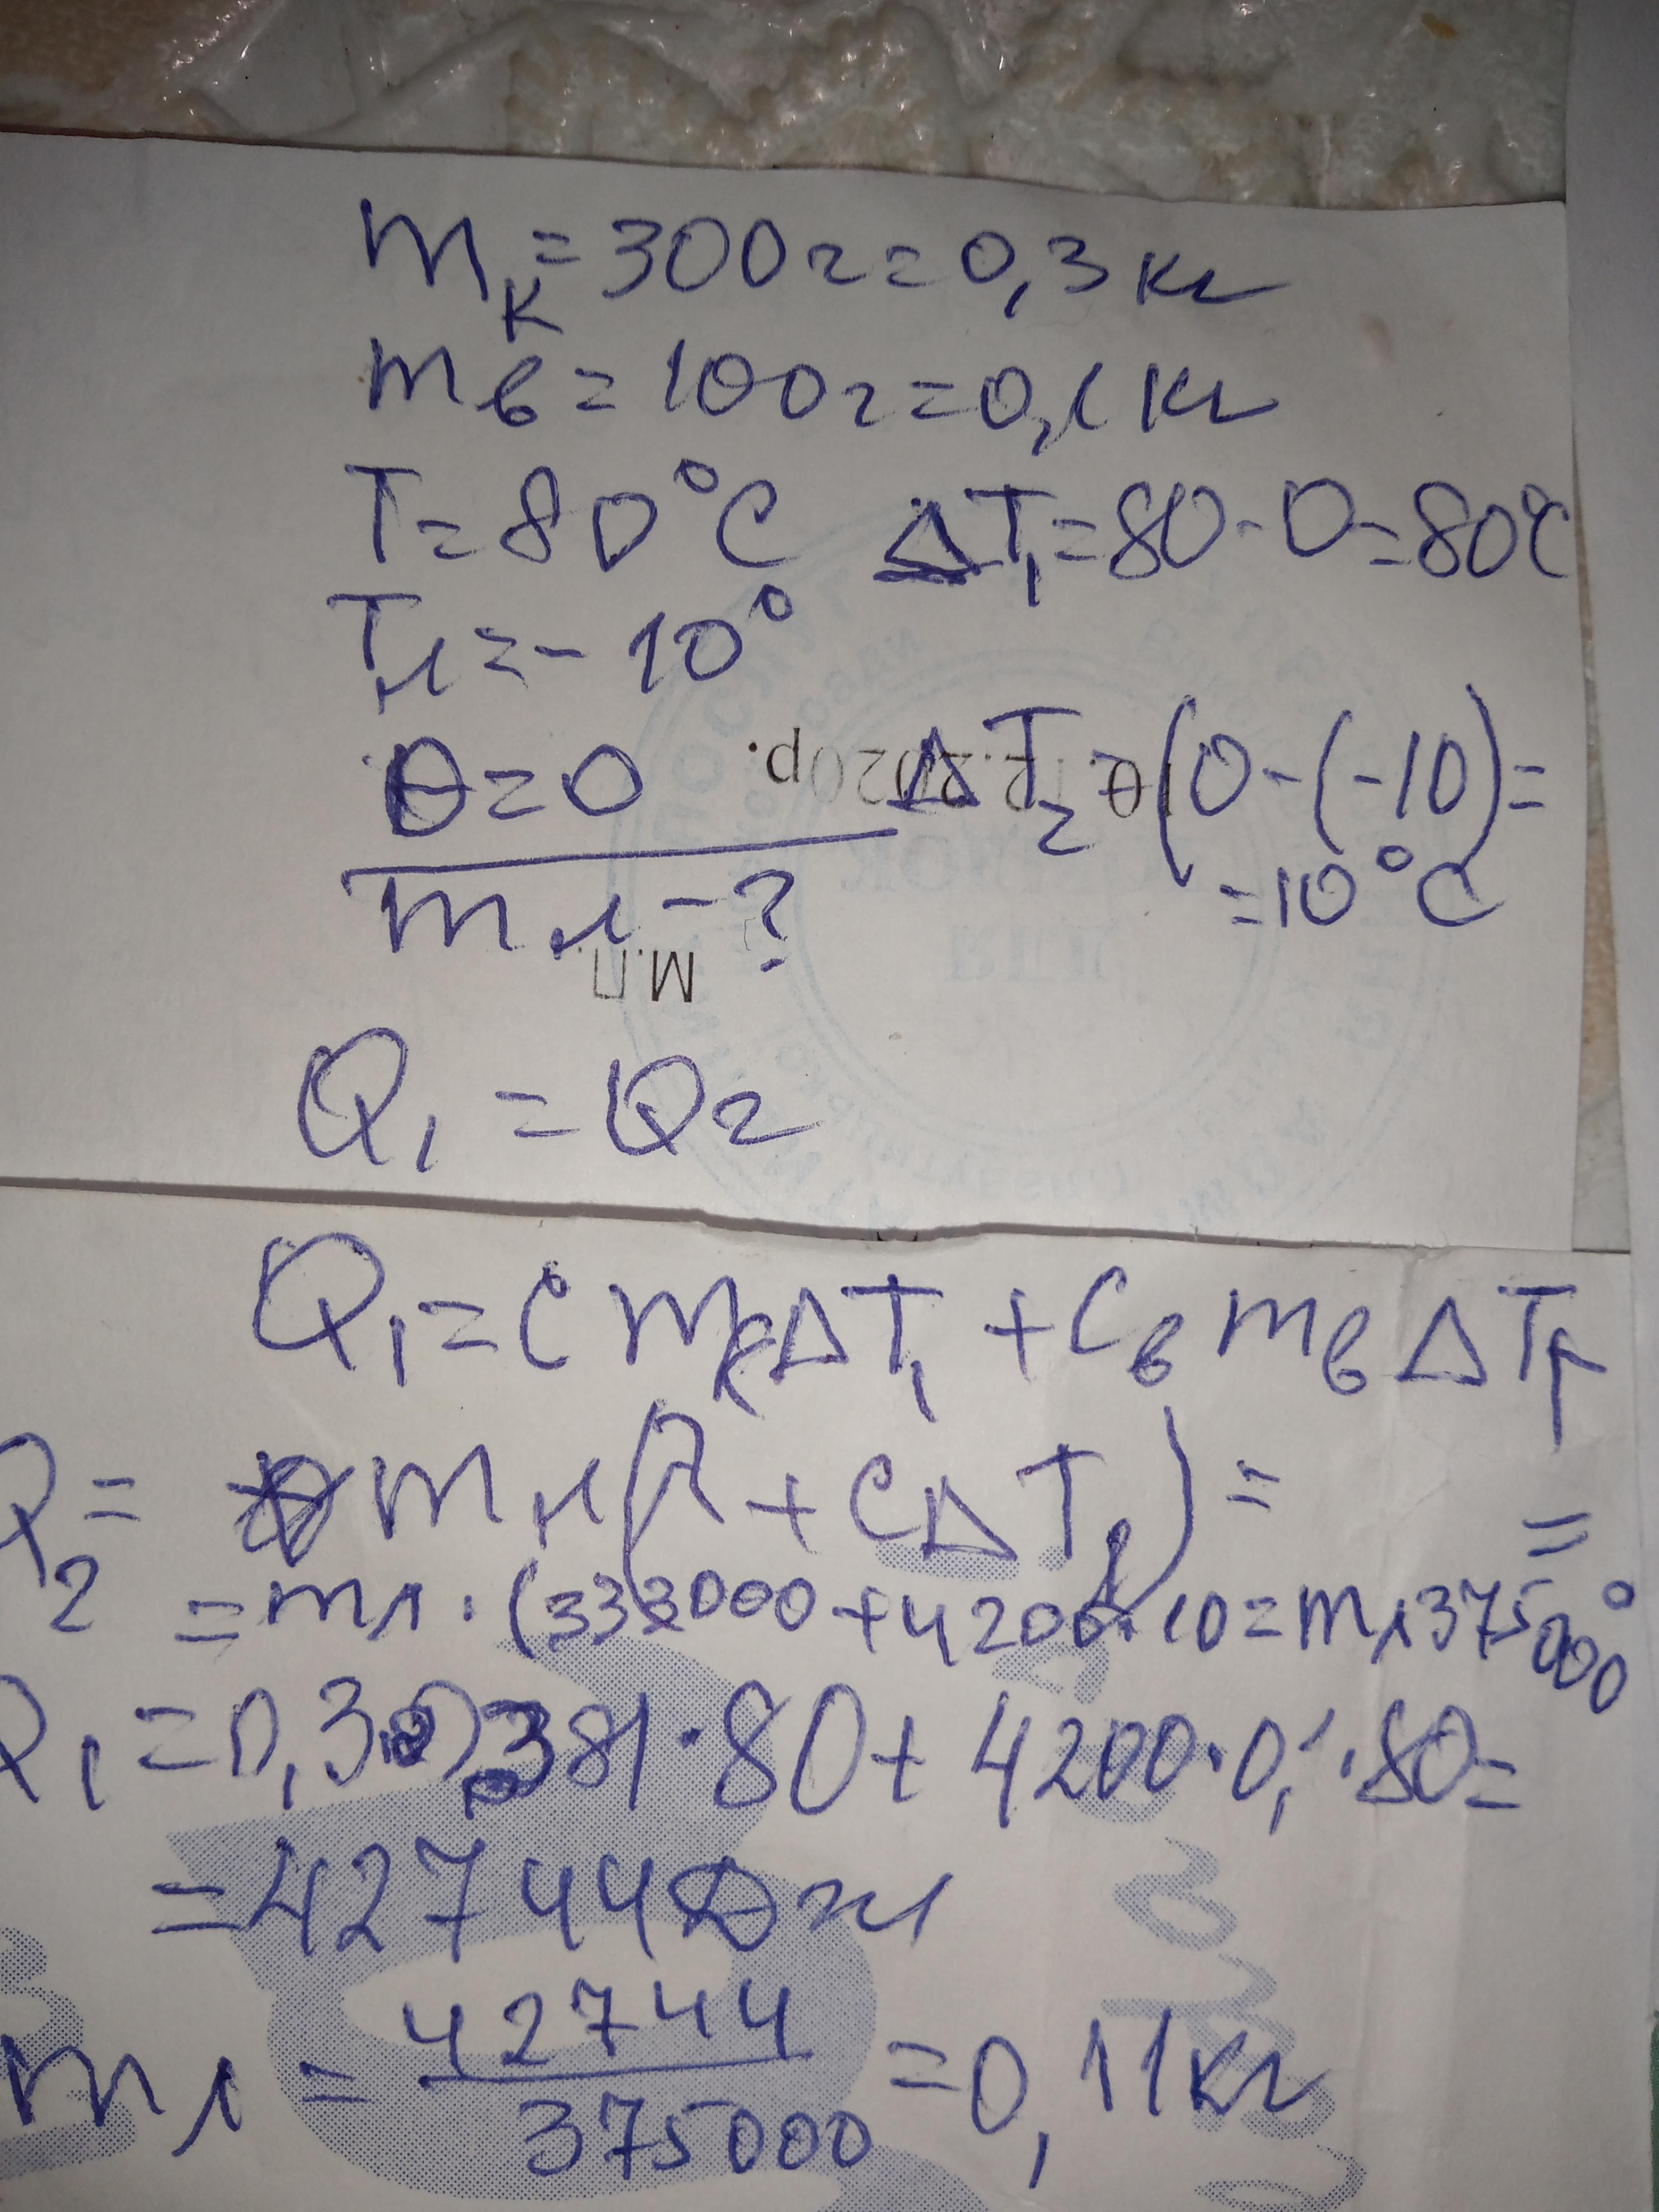 mк=300г=0,3кг
mв=100г=0,1кг
T=80°C ΔT₁=80-0=80°C
Tл=-10°
θ=0 ΔT₂=(0-(-10)=
=10°C
mл-?
М.П.
Q₁=Q₂
Q₁=cmкΔT₁+cвmвΔT₁
Q₂=mл(λ+cΔT₂)= =
=mл·(333000+4200·10=mл375000
Q₁=0,3·381·80+4200·0,1·80=
=42744Дж
mл=42744/375000=0,11кг